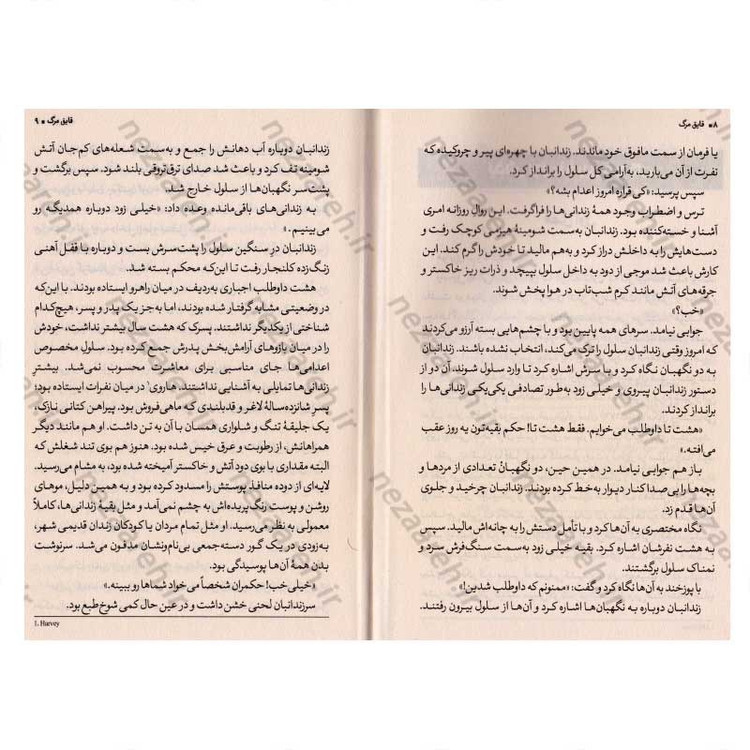 ۸ • قایق مرگ
یا فرمان از سمت مافوق خود ماندند. زندانبان با چهره‌ای پیر و چروکیده که
نفرت از آن می‌بارید، به‌آرامی کل سلول را برانداز کرد.
سپس پرسید: «کی قراره امروز اعدام بشه؟»
ترس و اضطراب وجود همهٔ زندانی‌ها را فراگرفت. این روالِ روزانه امری
آشنا و خسته‌کننده بود. زندانبان به‌سمت شومینهٔ هیزمی کوچک رفت و
دست‌هایش را به داخلش دراز کرد و به‌هم مالید تا خودش را گرم کند. این
کارش باعث شد موجی از دود به داخل سلول بپیچد و ذرات ریز خاکستر و
جرقه‌های آتش مانند کرم شب‌تاب در هوا پخش شوند.
«خب؟»
جوابی نیامد. سرهای همه پایین بود و با چشم‌هایی بسته آرزو می‌کردند
که امروز وقتی زندانبان سلول را ترک می‌کند، انتخاب نشده باشند. زندانبان
به دو نگهبان نگاه کرد و با سرش اشاره کرد تا وارد سلول شوند. آن دو از
دستور زندانبان پیروی و خیلی زود به‌طور تصادفی یکی‌یکی زندانی‌ها را
برانداز کردند.
«هشت تا داوطلب می‌خوایم. فقط هشت تا! حکم بقیه‌تون یه روز عقب
می‌افته.»
باز هم جوابی نیامد. در همین حین، دو نگهبانْ تعدادی از مردها و
بچه‌ها را بی‌صدا کنار دیوار به‌خط کرده بودند. زندانبان چرخید و جلوی
آن‌ها قدم زد.
نگاه مختصری به آن‌ها کرد و با تأمل دستش را به چانه‌اش مالید. سپس
به هشت نفرشان اشاره کرد. بقیه خیلی زود به‌سمت سنگ‌فرش سرد و
نمناک سلول برگشتند.
با پوزخند به آن‌ها نگاه کرد و گفت: «ممنونم که داوطلب شدین!»
زندانبان دوباره به نگهبان‌ها اشاره کرد و آن‌ها از سلول بیرون رفتند.
قایق مرگ • ۹
زندانبان دوباره آب دهانش را جمع و به‌سمت شعله‌های کم‌جان آتش
شومینه تف کرد و باعث شد صدای ترق‌تروقی بلند شود. سپس برگشت و
پشت‌سر نگهبان‌ها از سلول خارج شد.
به زندانی‌های باقی‌مانده وعده داد: «خیلی زود دوباره همدیگه رو
می‌بینیم.»
زندانبان درِ سنگین سلول را پشت‌سرش بست و دوباره با قفل آهنی
زنگ‌زده کلنجار رفت تا این‌که محکم بسته شد.
هشت داوطلب اجباری به‌ردیف در میان راهرو ایستاده بودند. با این‌که
در وضعیتی مشابه گرفتار شده بودند، اما به‌جز یک پدر و پسر، هیچ‌کدام
شناختی از یکدیگر نداشتند. پسرک که هشت سال بیشتر نداشت، خودش
را در میان بازوهای آرامش‌بخش پدرش جمع کرده بود. سلولِ مخصوص
اعدامی‌ها جای مناسبی برای معاشرت محسوب نمی‌شد. بیشترِ
زندانی‌ها تمایلی به آشنایی نداشتند. هاروی۱ در میان نفرات ایستاده بود؛
پسر شانزده‌سالهٔ لاغر و قدبلندی که ماهی‌فروش بود. پیراهن کتانی نازک،
یک جلیقهٔ تنگ و شلواری همسان با آن به تن داشت. او هم مانند دیگر
همراهانش، از رطوبت و عرق خیس شده بود. هنوز هم بوی تند شغلش که
البته مقداری با بوی دود آتش و خاکستر آمیخته شده بود، به مشام می‌رسید.
لایه‌ای از دوده منافذ پوستش را مسدود کرده بود و به همین دلیل، موهای
روشن و پوست رنگ‌پریده‌اش به چشم نمی‌آمد و مثل بقیهٔ زندانی‌ها، کاملاً
معمولی به نظر می‌رسید. او مثل تمام مردان یا کودکان زندان قدیمی شهر،
به‌زودی در یک گور دسته‌جمعی بی‌نام‌ونشان مدفون می‌شد. سرنوشت
بدن همهٔ آن‌ها پوسیدگی بود.
«خیلی خب! حکمران شخصاً می‌خواد شماها رو ببینه.»
سرزندانبان لحنی خشن داشت و در عین حال کمی شوخ‌طبع بود.
1. Harvey
nezaareh.ir